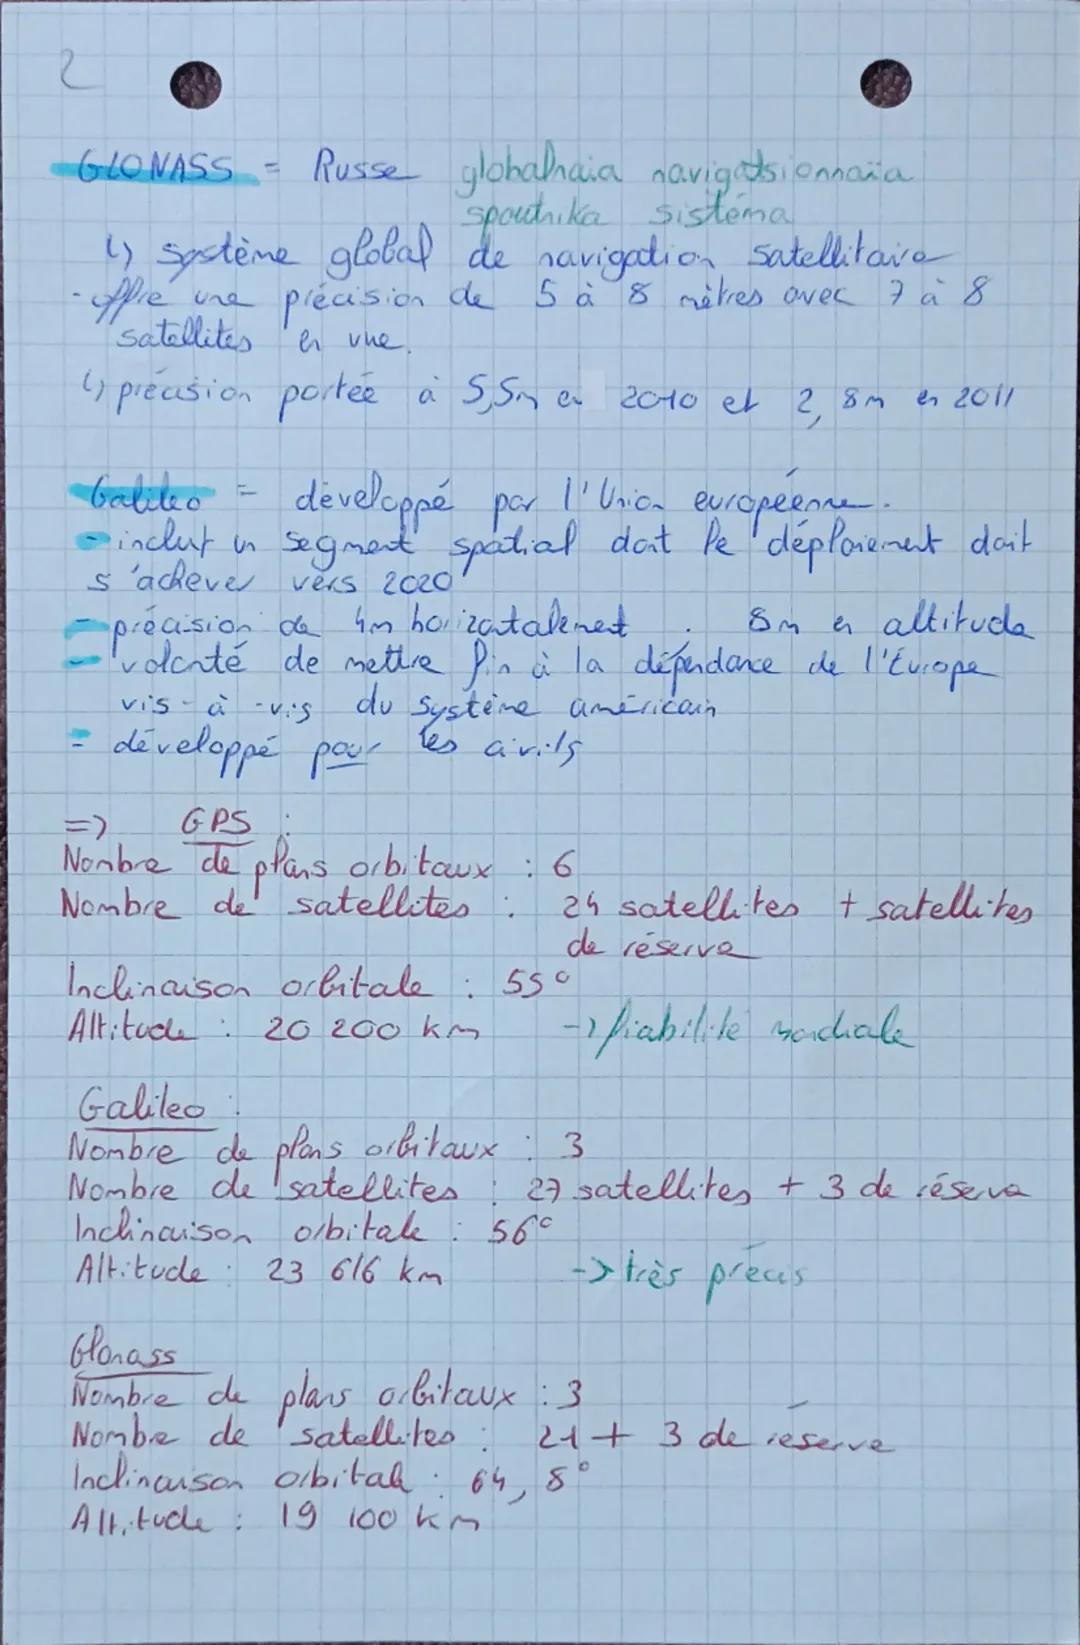 2
GLONASS = Russe globalnaia navigatsionnaïa
spoutnika sistéma
↳ système global de navigation satellitaire
- offre une précision de 5 à 8 mètres avec 7 à 8
satellites en vue.
↳ précision portée à 5,5m en 2010 et 2,8m en 2011
Galileo = développé par l'Union européenne.
- inclut un segment spatial dont le déploiement doit
s'achever vers 2020
- précision de 4m horizontalement. 8m en altitude
- volonté de mettre fin à la dépendance de l'Europe
vis-à-vis du système américain
- développé pour les civils
=> GPS :
Nombre de plans orbitaux : 6
Nombre de satellites : 24 satellites + satellites
de réserve
Inclinaison orbitale : 55°
Altitude : 20 200 km -> fiabilité mondiale
Galileo :
Nombre de plans orbitaux : 3
Nombre de satellites : 27 satellites + 3 de réserve
Inclinaison orbitale : 56°
Altitude : 23 616 km -> très précis
Glonass
Nombre de plans orbitaux : 3
Nombre de satellites : 21 + 3 de réserve
Inclinaison orbitale : 64,8°
Altitude : 19 100 km